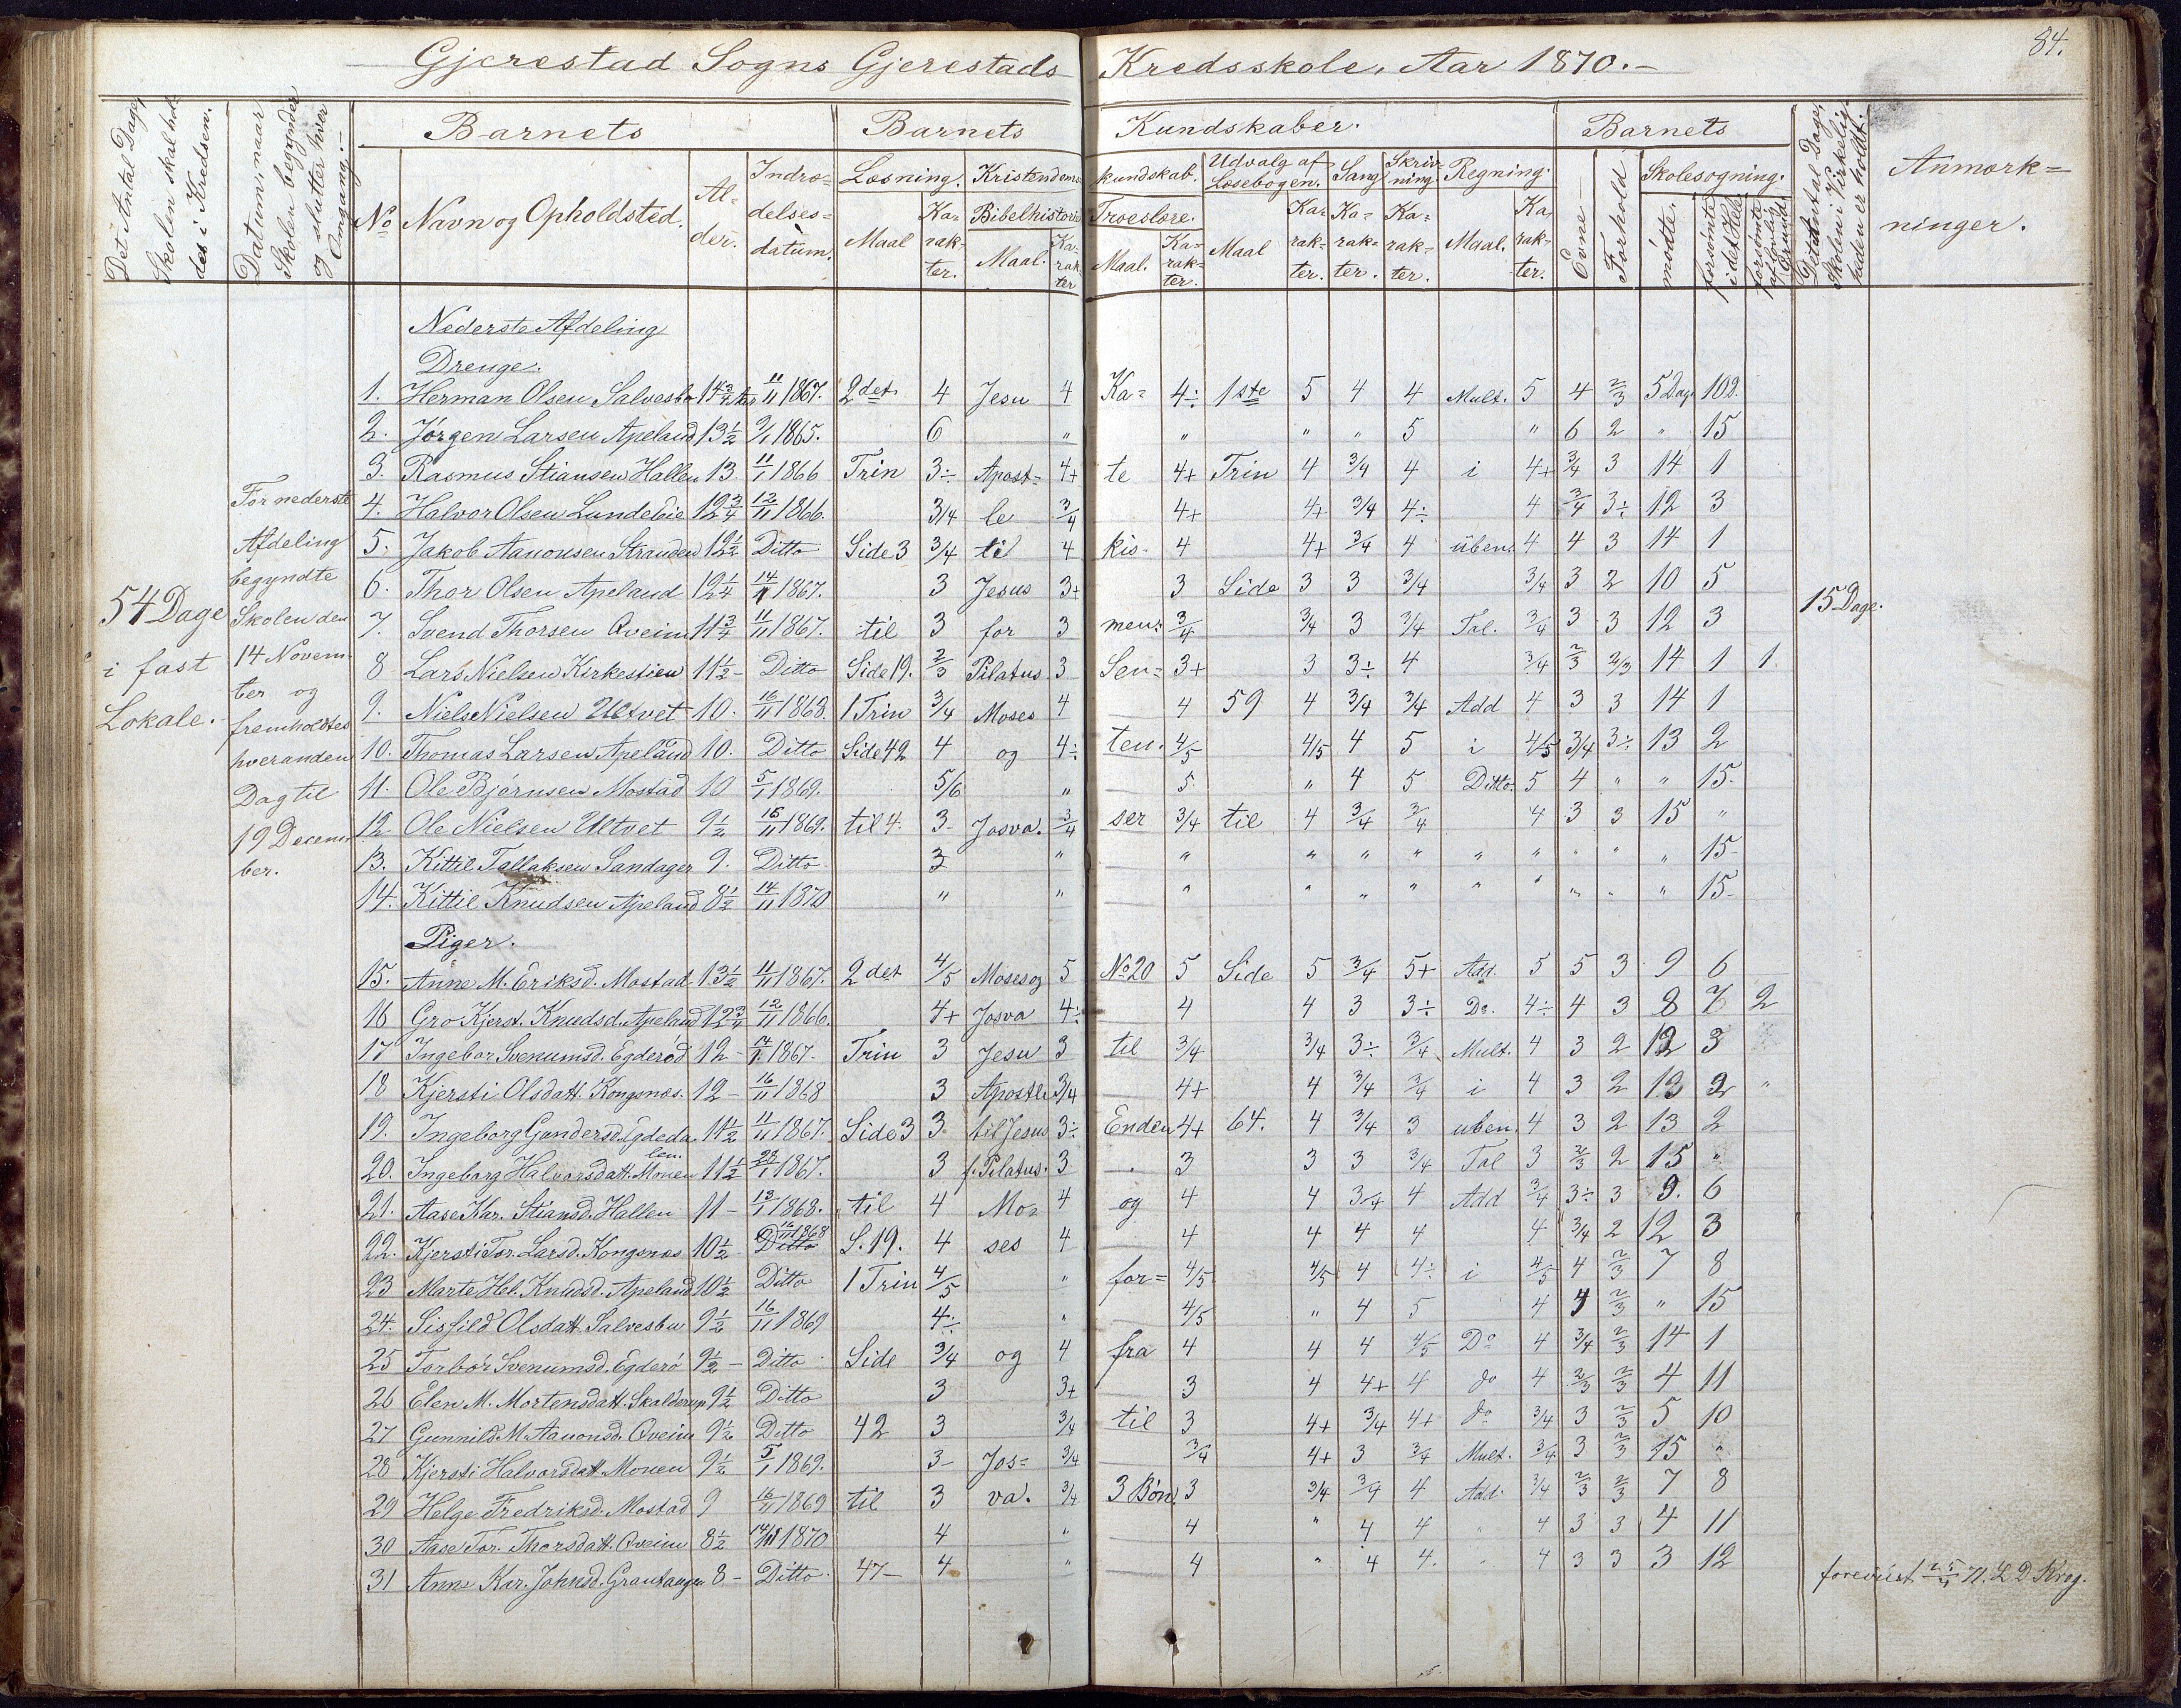 84.
Gjerestad Sogns Gjerestads Kredsskole, Aar 1870.
Det Antal Dage, Skolen skal holdes i Kredsen.
Datum, naar Skolen begynder og slutter hver Omgang.
Barnets
Barnets
Kundskaber.
Barnets
Det Antal Dage, Skolen i Virkeligheden er holdt.
Anmærkninger.
No
Navn og Opholdsted.
Alder.
Indtrædelsesdatum.
Læsning.
Kristendoms
kundskab.
Udvalg af Læsebogen.
Sang
Skrivning.
Regning.
Evne
Forhold
Skolesøgning.
Maal
Karakter.
Bibelhistorie
Maal.
Karakter
Troeslære.
Maal.
Karakter.
Maal
Karakter.
Karakter.
Karakter.
Maal.
Karakter.
mødte.
forsømte i det Hele
forsømte af lovlig Grund
54 Dage i fast Lokale.
For nederste Afdeling begyndte Skolen den 14 Novem-
ber og fremholdtes hveranden Dag til 19 Decem-
ber.
15 Dage.
Nederste Afdeling
Drenge.
1. Herman Olsen Salvesbo 14 3/4 Aar 11/11 1867. 2det 4 Jesu 4 Ka= 4÷ 1ste 5 4 4 Mult. 5 4 2/3 5 Dage 10 2.
2. Jørgen Larsen Apeland 13 1/2 9/1 1865. 6 " " " " 5 " 6 2 " 15
3. Rasmus Stiansen Hallen 13. 11/1 1866 Trin 3÷ Apost= 4+ te 4+ Trin 4 3/4 4 i 4+ 3/4 3 14 1
4. Halvor Olsen Lundebie 12 3/4 12/11 1866. 3/4 le 3/4 4+ 4+ 3/4 4÷ 4 3/4 3÷ 12 3
5. Jakob Aanonsen Stranden 12 1/2 Ditto Side 3 3/4 til 4 kis- 4 4+ 3/4 4 üben. 4 4 3 14 1
6. Thor Olsen Apeland 12 1/4 14/1 1867. 3 Jesus 3+ 3 Side 3 3 3/4 3/4 3 2 10 5
7. Svend Thorsen Qveim 11 3/4 11/11 1867. til 3 for 3 men= 3/4 3/4 3 3/4 Tal. 3/4 3 3 12 3
8 Lars Nielsen Kirkestien 11 1/2 - Ditto Side 19. 2/3 Pilatus 3 Sen= 3+ 3 3÷ 4 3/4 2/3 2/3 14 1 1.
9. Niels Nielsen Ultvet 10. 16/11 1868. 1 Trin 3/4 Moses 4 4 59 4 3/4 3/4 Add 4 3 3 14 1
10. Thomas Larsen Apeland 10. Ditto Side 42 4 og 4÷ ten. 4/5 4/5 4 5 i 4/5 3/4 3÷ 13 2
11. Ole Bjørnsen Mostad 10 5/1 1869. 5/6 " 5 " 4 5 Ditto. 5 4 " " 15.
12 Ole Nielsen Ultvet 9 1/2 16/11 1869. til 4. 3- Josva. 3/4 ser 3/4 til 4 3/4 3/4 4 3 3 15 "
13. Kittil Tallaksen Sandager 9. Ditto. 3 " " " " " " " " " " 15-
14. Kittil Knudsen Apeland 8 1/2 14/11 1870 " " " " " " " " " " " 15-
Piger.
15. Anne M. Eriksd. Mostad 13 1/2 11/11 1867. 2det 4/5 Moses og 5 No 20 5 Side 5 3/4 5+ Add. 5 5 3 9 6
16 Gro Kjerst. Knudsd. Apeland 12 3/4 12/11 1866. 4+ Josva 4÷ 4 4 3 3÷ Do. 4÷ 4 3 8 7 2
17 Ingebor Svenumsd. Egderød 12 - 14/1 1867. Trin 3 Jesu 3 til 3/4 3/4 3÷ 3/4 Mult. 4 3 2 12 3
18 Kjersti Olsdatt. Kongsnæs. 12 - 16/11 1868 3 Apostle 3/4 4+ 4 3/4 3/4 i 4 3 2 13 2 "
19. Ingeborg Gundersd. Egdeda len. 11 1/2 11/11 1867. Side 3 3 til Jesus 3÷ Enden 4+ 64. 4 3/4 3 uben. 4 3 2 13 2
20. Ingeborg Halvorsdatt. Monen 11 1/2 28/1 1867. 3 f. Pilatus. 3 3 3 3 3/4 Tal 3 2/3 2 15 "
21. Aase Kar. Stiansd. Hallen 11 - 13/1 1868. til 4 Mo= 4 og 4 4 3/4 4 Add 3/4 3÷ 3 9. 6
22. Kjersti Tor. Larsd. Kongsnæs 10 1/2 Ditto 16/11 1868 S. 19. 4 ses 4 4 4 4 4 4 3/4 2 12 3
23 Marte Hel. Knudsd. Apeland 10 1/2 Ditto 1 Trin 4/5 " for= 4/5 4/5 4 4÷ i 4/5 4 2/3 7 8
24. Sisfild Olsdatt. Salvesbu 9 1/2 16/11 1869 4÷ " 4/5 " 4 5 4 4 2/3 " 15
25 Torbør Svenumsd. Egderø 9 1/2 - Ditto Side 3/4 og 4 fra 4 4 4 4/5 Do 4 3/4 2/3 14 1
26 Elen M. Mortensdatt. Skalderup 9 1/2 Ditto 3 3+ 3 4 4+ 4 do 4 2/3 2/3 4 11
27 Gunnild M. Aanonsd. Qveim 9 1/2 Ditto 42 3 3/4 til 3 4+ 3/4 4+ do 3/4 3 2/3 5 10
28 Kjersti Halvorsdatt. Monen 9 1/2 5/1 1869. 3- Jos= 3/4 3/4 4+ 3 3/4 Mult. 3/4 3 2/3 15 "
29 Helge Fredriksd. Mostad 9 16/11 1869 til 3 va. 3/4 3 Bøn. 3 3/4 3/4 4 Add. 3/4 2/3 2/3 7 8
30 Aase Tor. Thorsdatt. Qveim 8 1/2 14/11 1870 4 " 4 " 4 4 " 4 3 3 4 11
31 Anne Kar. Johnsd. Grautangen 8 - Ditto. 47- 4 " 4 " 4 4. " 4 3 3 3 12
foreviist 25/4 71. L D Krog.